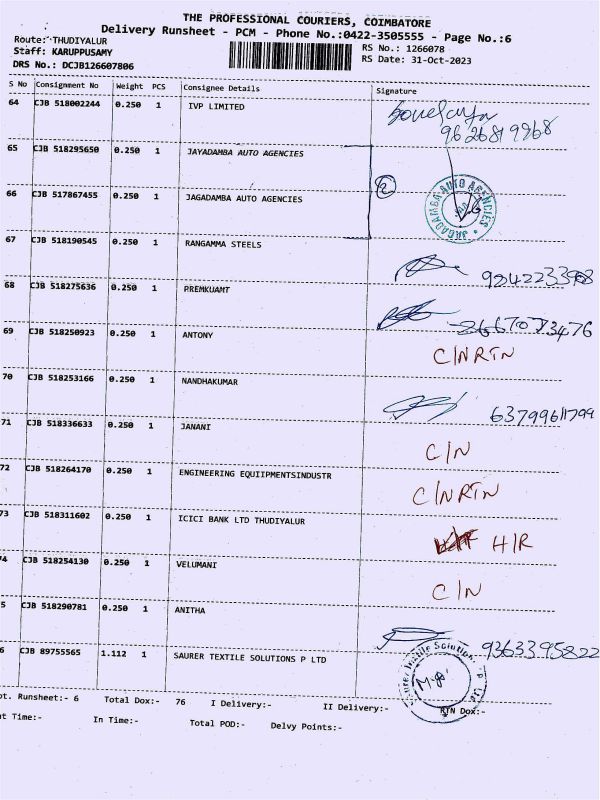 THE PROFESSIONAL COURIERS, COIMBATORE
Delivery Runsheet - PCM - Phone No.:0422-3505555 - Page No.:6
Route: THUDIYALUR
RS No.: 1266078
Staff: KARUPPUSAMY
RS Date: 31-Oct-2023
DRS No.: DCJB126607806
S No Consignment No Weight PCS Consignee Details Signature
64 CJB 518002244 0.250 1 IVP LIMITED
9626819968
65 CJB 518295650 0.250 1 JAYADAMBA AUTO AGENCIES
2
66 CJB 517867455 0.250 1 JAGADAMBA AUTO AGENCIES
JAGADAMBA AUTO AGENCIES
67 CJB 518190545 0.250 1 RANGAMMA STEELS
68 CJB 518275636 0.250 1 PREMKUAMT
69 CJB 518250923 0.250 1 ANTONY C/N RTN
70 CJB 518253166 0.250 1 NANDHAKUMAR
63799611799
71 CJB 518336633 0.250 1 JANANI C/N
72 CJB 518264170 0.250 1 ENGINEERING EQUIIPMENTSINDUSTR C/N RTN
73 CJB 518311602 0.250 1 ICICI BANK LTD THUDIYALUR H/R
4 CJB 518254130 0.250 1 VELUMANI C/N
5 CJB 518290781 0.250 1 ANITHA
9363395822
6 CJB 89755565 1.112 1 SAURER TEXTILE SOLUTIONS P LTD
Saurer Textile Solutions P Ltd
ot. Runsheet:- 6 Total Dox:- 76 I Delivery:- II Delivery:- RTN Dox:-
t Time:- In Time:- Total POD:- Delvy Points:-